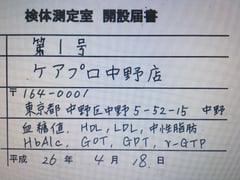 検体測定室 開設届書
第1号
ケアプロ中野店
〒164-0001
東京都中野区中野5-52-15 中野
血糖値, HDL, LDL, 中性脂肪
HbA1c, GOT, GPT, γ-GTP
平成 26年 4月 18日